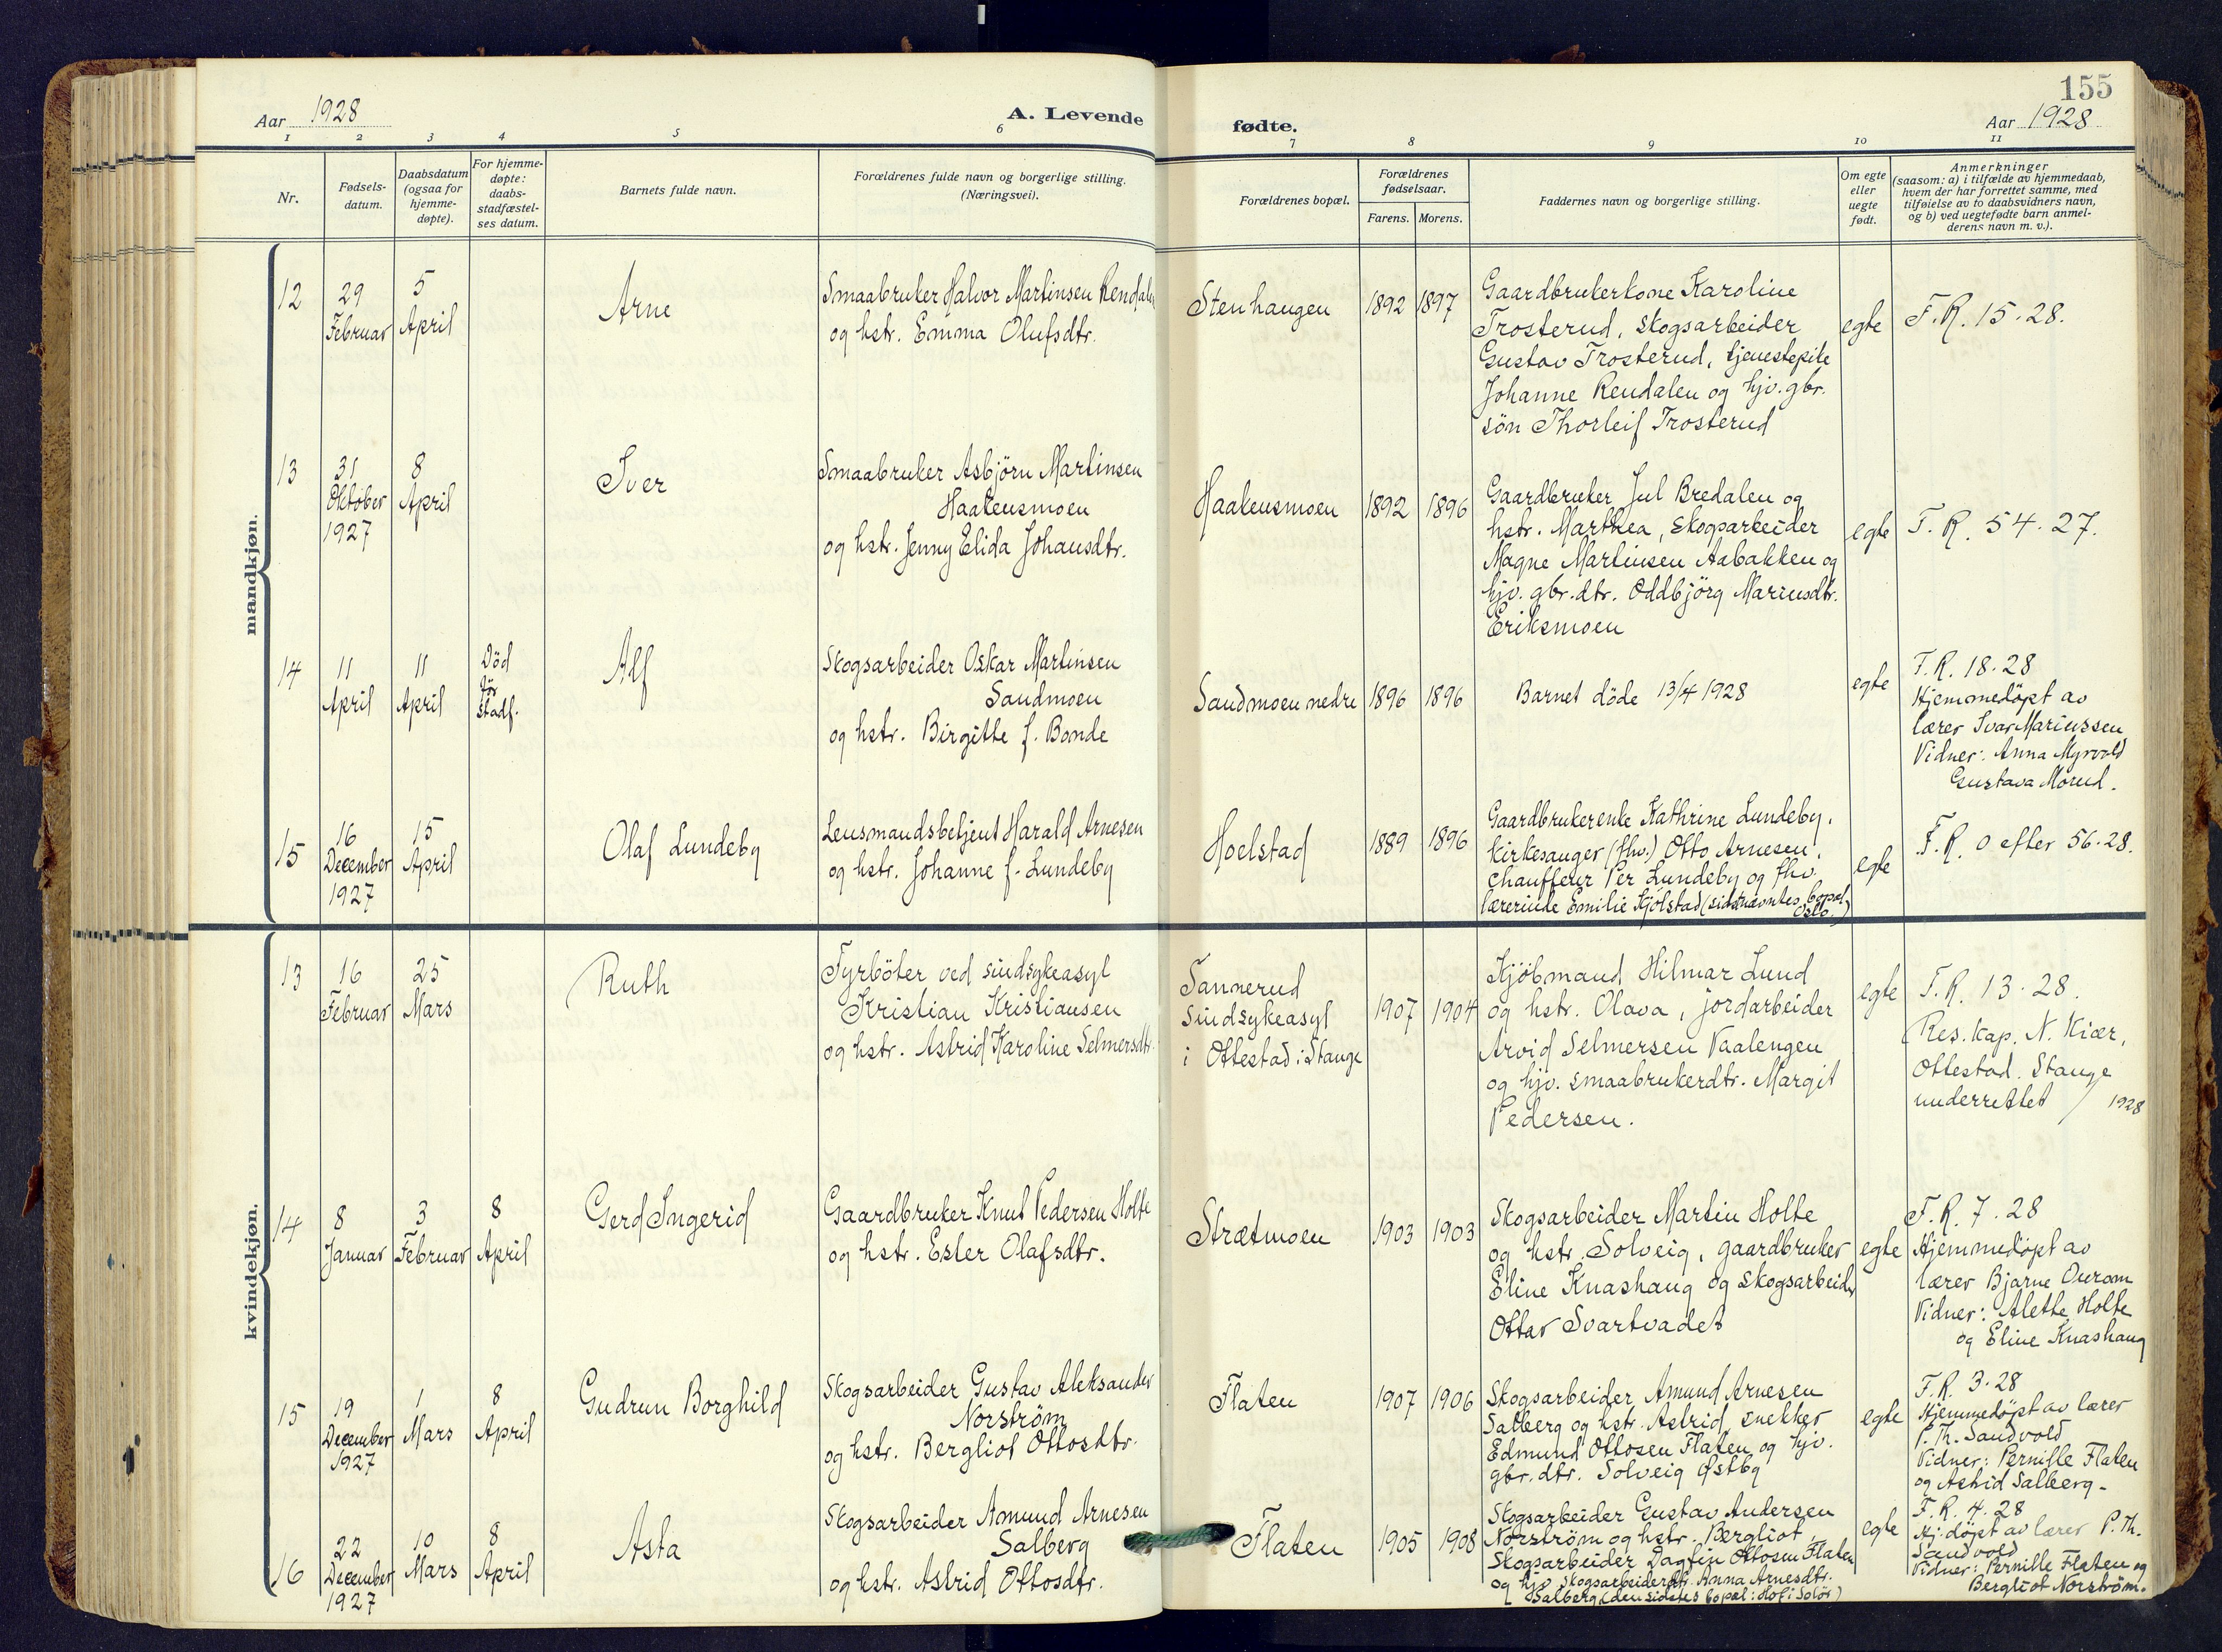 155
Aar 1928
A. Levende
fødte.
Aar 1928
1 2 3 4 5 6 7 8 9 10 11
Nr.
Fødsels-
datum.
Daabsdatum
(ogsaa for
hjemme-
døpte).
For hjemme-
døpte:
daabs-
stadfæstel-
ses datum.
Barnets fulde navn.
Forældrenes fulde navn og borgerlige stilling.
(Næringsvei).
Forældrenes bopæl.
Forældrenes
fødselsaar.
Farens. Morens.
Faddernes navn og borgerlige stilling.
Om egte
eller
uegte
født.
Anmerkninger
(saasom: a) i tilfælde av hjemmedaab,
hvem der har forrettet samme, med
tilføielse av to daabsvidners navn,
og b) ved uegtefødte barn anmel-
derens navn m. v.).
mandkjøn.
12
29
Februar
5
April
Arne
Smaabruker Halvor Martinsen Rendalen
og hstr. Emma Olufsdtr.
Stenhaugen
1892
1897
Gaardbrukerkone Karoline
Trosterud, skogsarbeider
Gustav Trosterud, tjenestepike
Johanne Rendalen og hjv. gbr.
søn Thorleif Trosterud
egte
F.R. 15.28.
13
31
Oktober
1927
8
April
Iver
Smaabruker Asbjørn Martinsen
Haakensmoen
og hstr. Jenny Elida Johansdtr.
Haakensmoen
1892
1896
Gaardbruker Jul Bredalen og
hstr. Marthea, skogsarbeider
Magne Martinsen Aabakken og
hjv. gbr.dtr. Oddbjörg Mariusdtr.
Eriksmoen
egte
F.R. 54.27.
14
11
April
11
April
Död
før
stadf.
Alf
Skogsarbeider Oskar Martinsen
Sandmoen
og hstr. Birgitte f. Bonde
Sandmoen nedre
1896
1896
Barnet döde 13/4 1928
egte
F.R. 18.28
Hjemmedöpt av
lærer Ivar Mariussen
Vidner: Anna Myrvold
Gustava Morud.
15
16
December
1927
15
April
Olaf Lundeby
Lensmandsbetjent Harald Arnesen
og hstr. Johanne f. Lundeby
Hoelstad
1889
1896
Gaardbrukerenke Kathrine Lundeby,
kirkesanger (fhv.) Otto Arnesen,
chauffeur Per Lundeby og fhv.
lærerinde Emilie Kjølstad (sidstnævntes bopæl
Oslo.)
egte
F.R. 0 efter 56.28.
kvindekjøn.
13
16
Februar
25
Mars
Ruth
Fyrböter ved sindsykeasyl
Kristian Kristiansen
og hstr. Astrid Karoline Selmersdtr.
Sannerud
Sindsykeasyl
i Ottestad i Stange
1907
1904
Kjöbmand Hilmar Lund
og hstr. Olava, jordarbeider
Arvid Selmersen Vaalengen
og hjv. smaabrukerdtr. Margit
Pedersen.
egte
F.R. 13.28.
Res. kap. N. Kiær,
Ottestad. Stange
underrettet / 1928
14
8
Januar
3
Februar
8
April
Gerd Ingerid
Gaardbruker Knut Pedersen Holte
og hstr. Ester Olafsdtr.
Strætmoen
1903
1903
Skogsarbeider Martin Holte
og hstr. Solveig, gaardbruker
Eline Knashaug og skogsarbeider
Ottar Svartvadet
egte
F.R. 7.28
Hjemmedöpt av
lærer Bjarne
Vidner: Alette Holte
og Eline Knashaug
15
19
December
1927
1
Mars
8
April
Gudrun Borghild
Skogsarbeider Gustav Aleksander
Norström
og hstr. Bergliot Ottosdtr.
Flaten
1907
1906
Skogsarbeider Amund Arnesen
Salberg og hstr. Astrid, snekker
Edmund Ottosen Flaten og hjv.
gbr.dtr. Solveig Østby
egte
F.R. 3.28
Hjemmedöpt av lærer
P. Th. Sandvold
Vidner: Pernille Flaten
og Astrid Salberg.
16
22
December
1927
10
Mars
8
April
Asta
Skogsarbeider Amund Arnesen
Salberg
og hstr. Astrid Ottosdtr.
Flaten
1905
1908
Skogsarbeider Gustav Andersen
Norström og hstr. Bergliot,
Skogsarbeider Dagfin Ottosen Flaten
og hjv. skogsarbeiderdtr. Anna Arnesdtr.
Salberg (den sidstes bopæl: Hof i Solör)
egte
F.R. 4.28
Hj.döpt av lærer P. Th.
Sandvold
Vidner: Pernille Flaten og
Bergliot Norström.